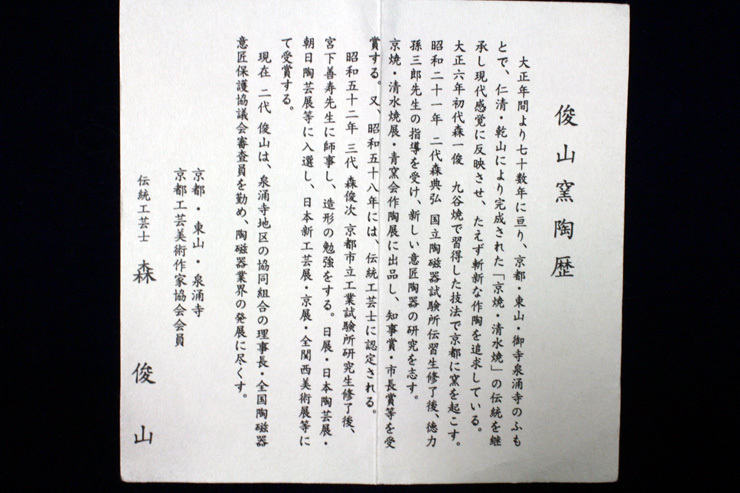 俊山窯陶歴
大正年間より七十数年に亘り、京都・東山・御寺泉涌寺のふも
とで、仁清・乾山により完成された「京焼・清水焼」の伝統を継
承し現代感覚に反映させ、たえず斬新な作陶を追求している。
大正六年初代森一俊　九谷焼で習得した技法で京都に窯を起こす。
昭和二十一年　二代森典弘　国立陶磁器試験所伝習生修了後、徳力
孫三郎先生の指導を受け、新しい意匠陶器の研究を志す。
京焼・清水焼展・青窯会作陶展に出品し、知事賞・市長賞等を受
賞する。又、昭和五十八年には、伝統工芸士に認定される。
昭和五十二年　三代　森俊次　京都市立工業試験所研究生修了後、
宮下善寿先生に師事し、造形の勉強をする。日展・日本陶芸展・
朝日陶芸展等に入選し、日本新工芸展・京展・全関西美術展等に
て受賞する。
現在　二代　俊山は、泉涌寺地区の協同組合の理事長・全国陶磁器
意匠保護協議会審査員を勤め、陶磁器業界の発展に尽くす。
京都・東山・泉涌寺
京都工芸美術作家協会会員
伝統工芸士　森　俊山